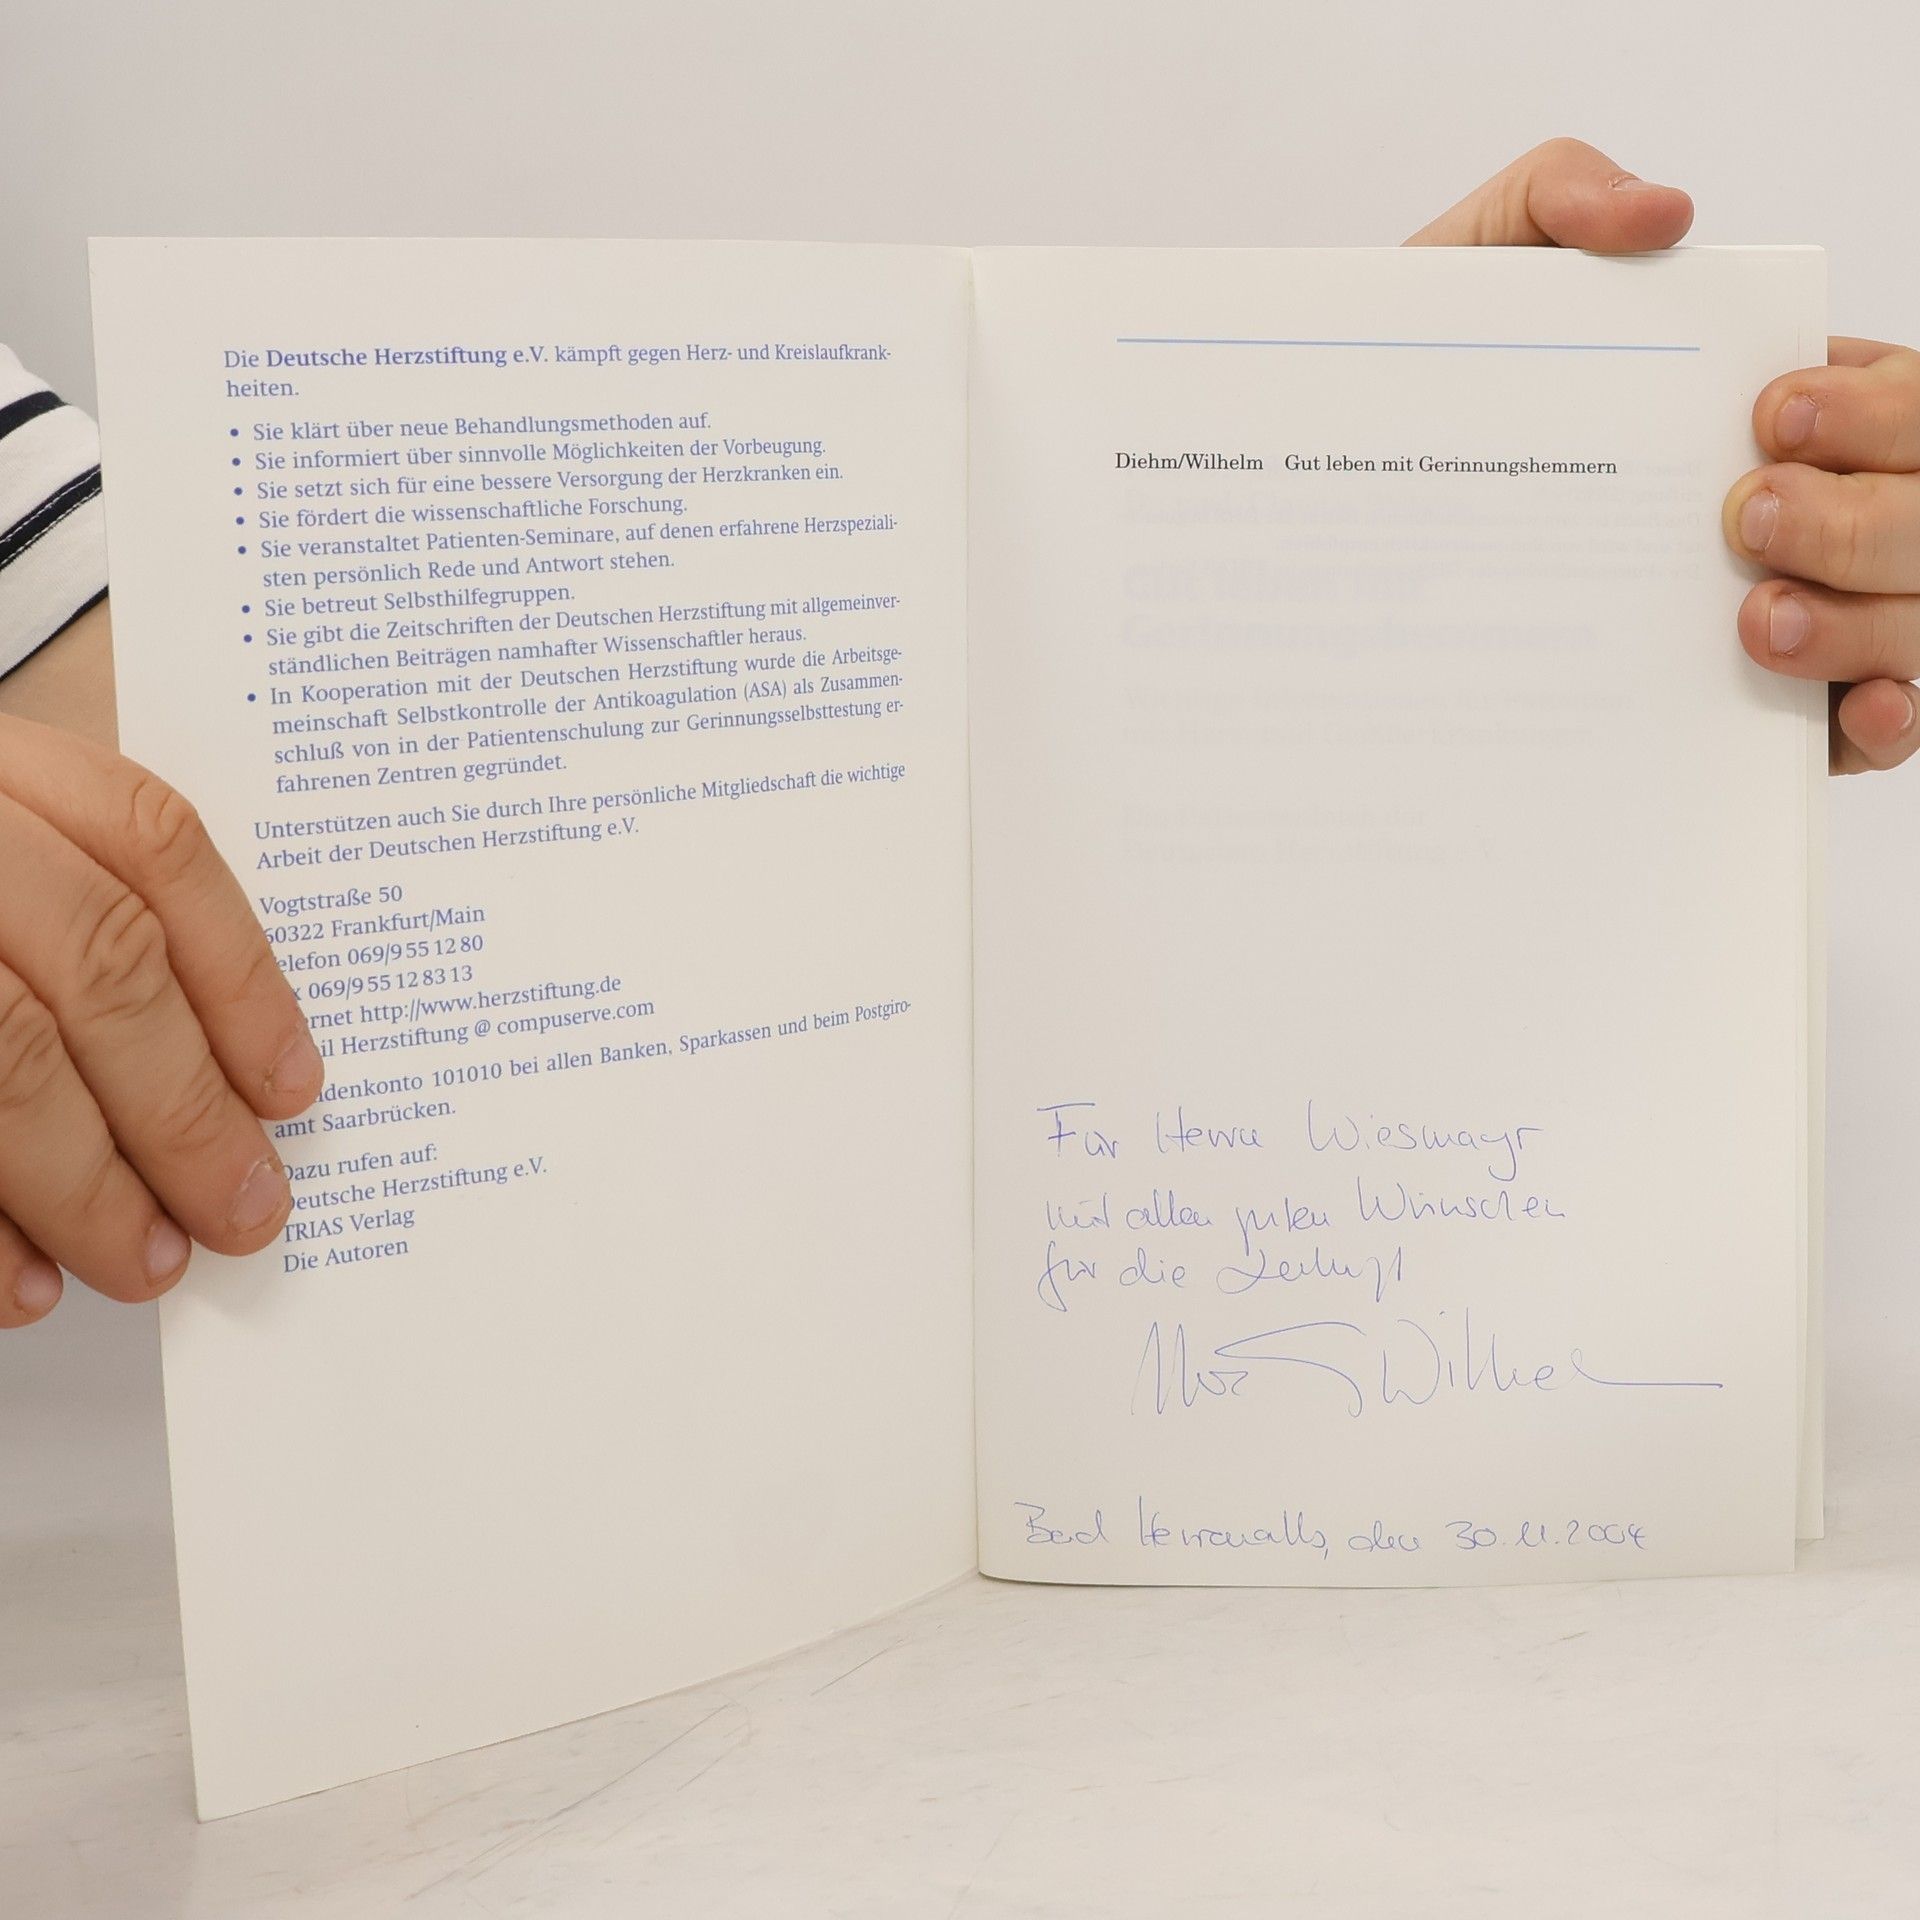 Die Deutsche Herzstiftung e.V. kämpft gegen Herz- und Kreislaufkrank-
heiten.
• Sie klärt über neue Behandlungsmethoden auf.
• Sie informiert über sinnvolle Möglichkeiten der Vorbeugung.
• Sie setzt sich für eine bessere Versorgung der Herzkranken ein.
• Sie fördert die wissenschaftliche Forschung.
• Sie veranstaltet Patienten-Seminare, auf denen erfahrene Herzspeziali-
sten persönlich Rede und Antwort stehen.
• Sie betreut Selbsthilfegruppen.
• Sie gibt die Zeitschriften der Deutschen Herzstiftung mit allgemeinver-
ständlichen Beiträgen namhafter Wissenschaftler heraus.
• In Kooperation mit der Deutschen Herzstiftung wurde die Arbeitsge-
meinschaft Selbstkontrolle der Antikoagulation (ASA) als Zusammen-
schluß von in der Patientenschulung zur Gerinnungsselbsttestung er-
fahrenen Zentren gegründet.
Unterstützen auch Sie durch Ihre persönliche Mitgliedschaft die wichtige
Arbeit der Deutschen Herzstiftung e.V.
Vogtstraße 50
60322 Frankfurt/Main
elefon 069/9 55 12 80
x 069/9 55 12 83 13
rnet http://www.herzstiftung.de
il Herzstiftung @ compuserve.com
denkonto 101010 bei allen Banken, Sparkassen und beim Postgiro-
amt Saarbrücken.
Dazu rufen auf:
Deutsche Herzstiftung e.V.
TRIAS Verlag
Die Autoren
Diehm/Wilhelm Gut leben mit Gerinnungshemmern
Für Herrn Wiesmayr
mit allen guten Wünschen
für die Zukunft
Wilhelm
Bad Herrenalb, den 30.11.2004